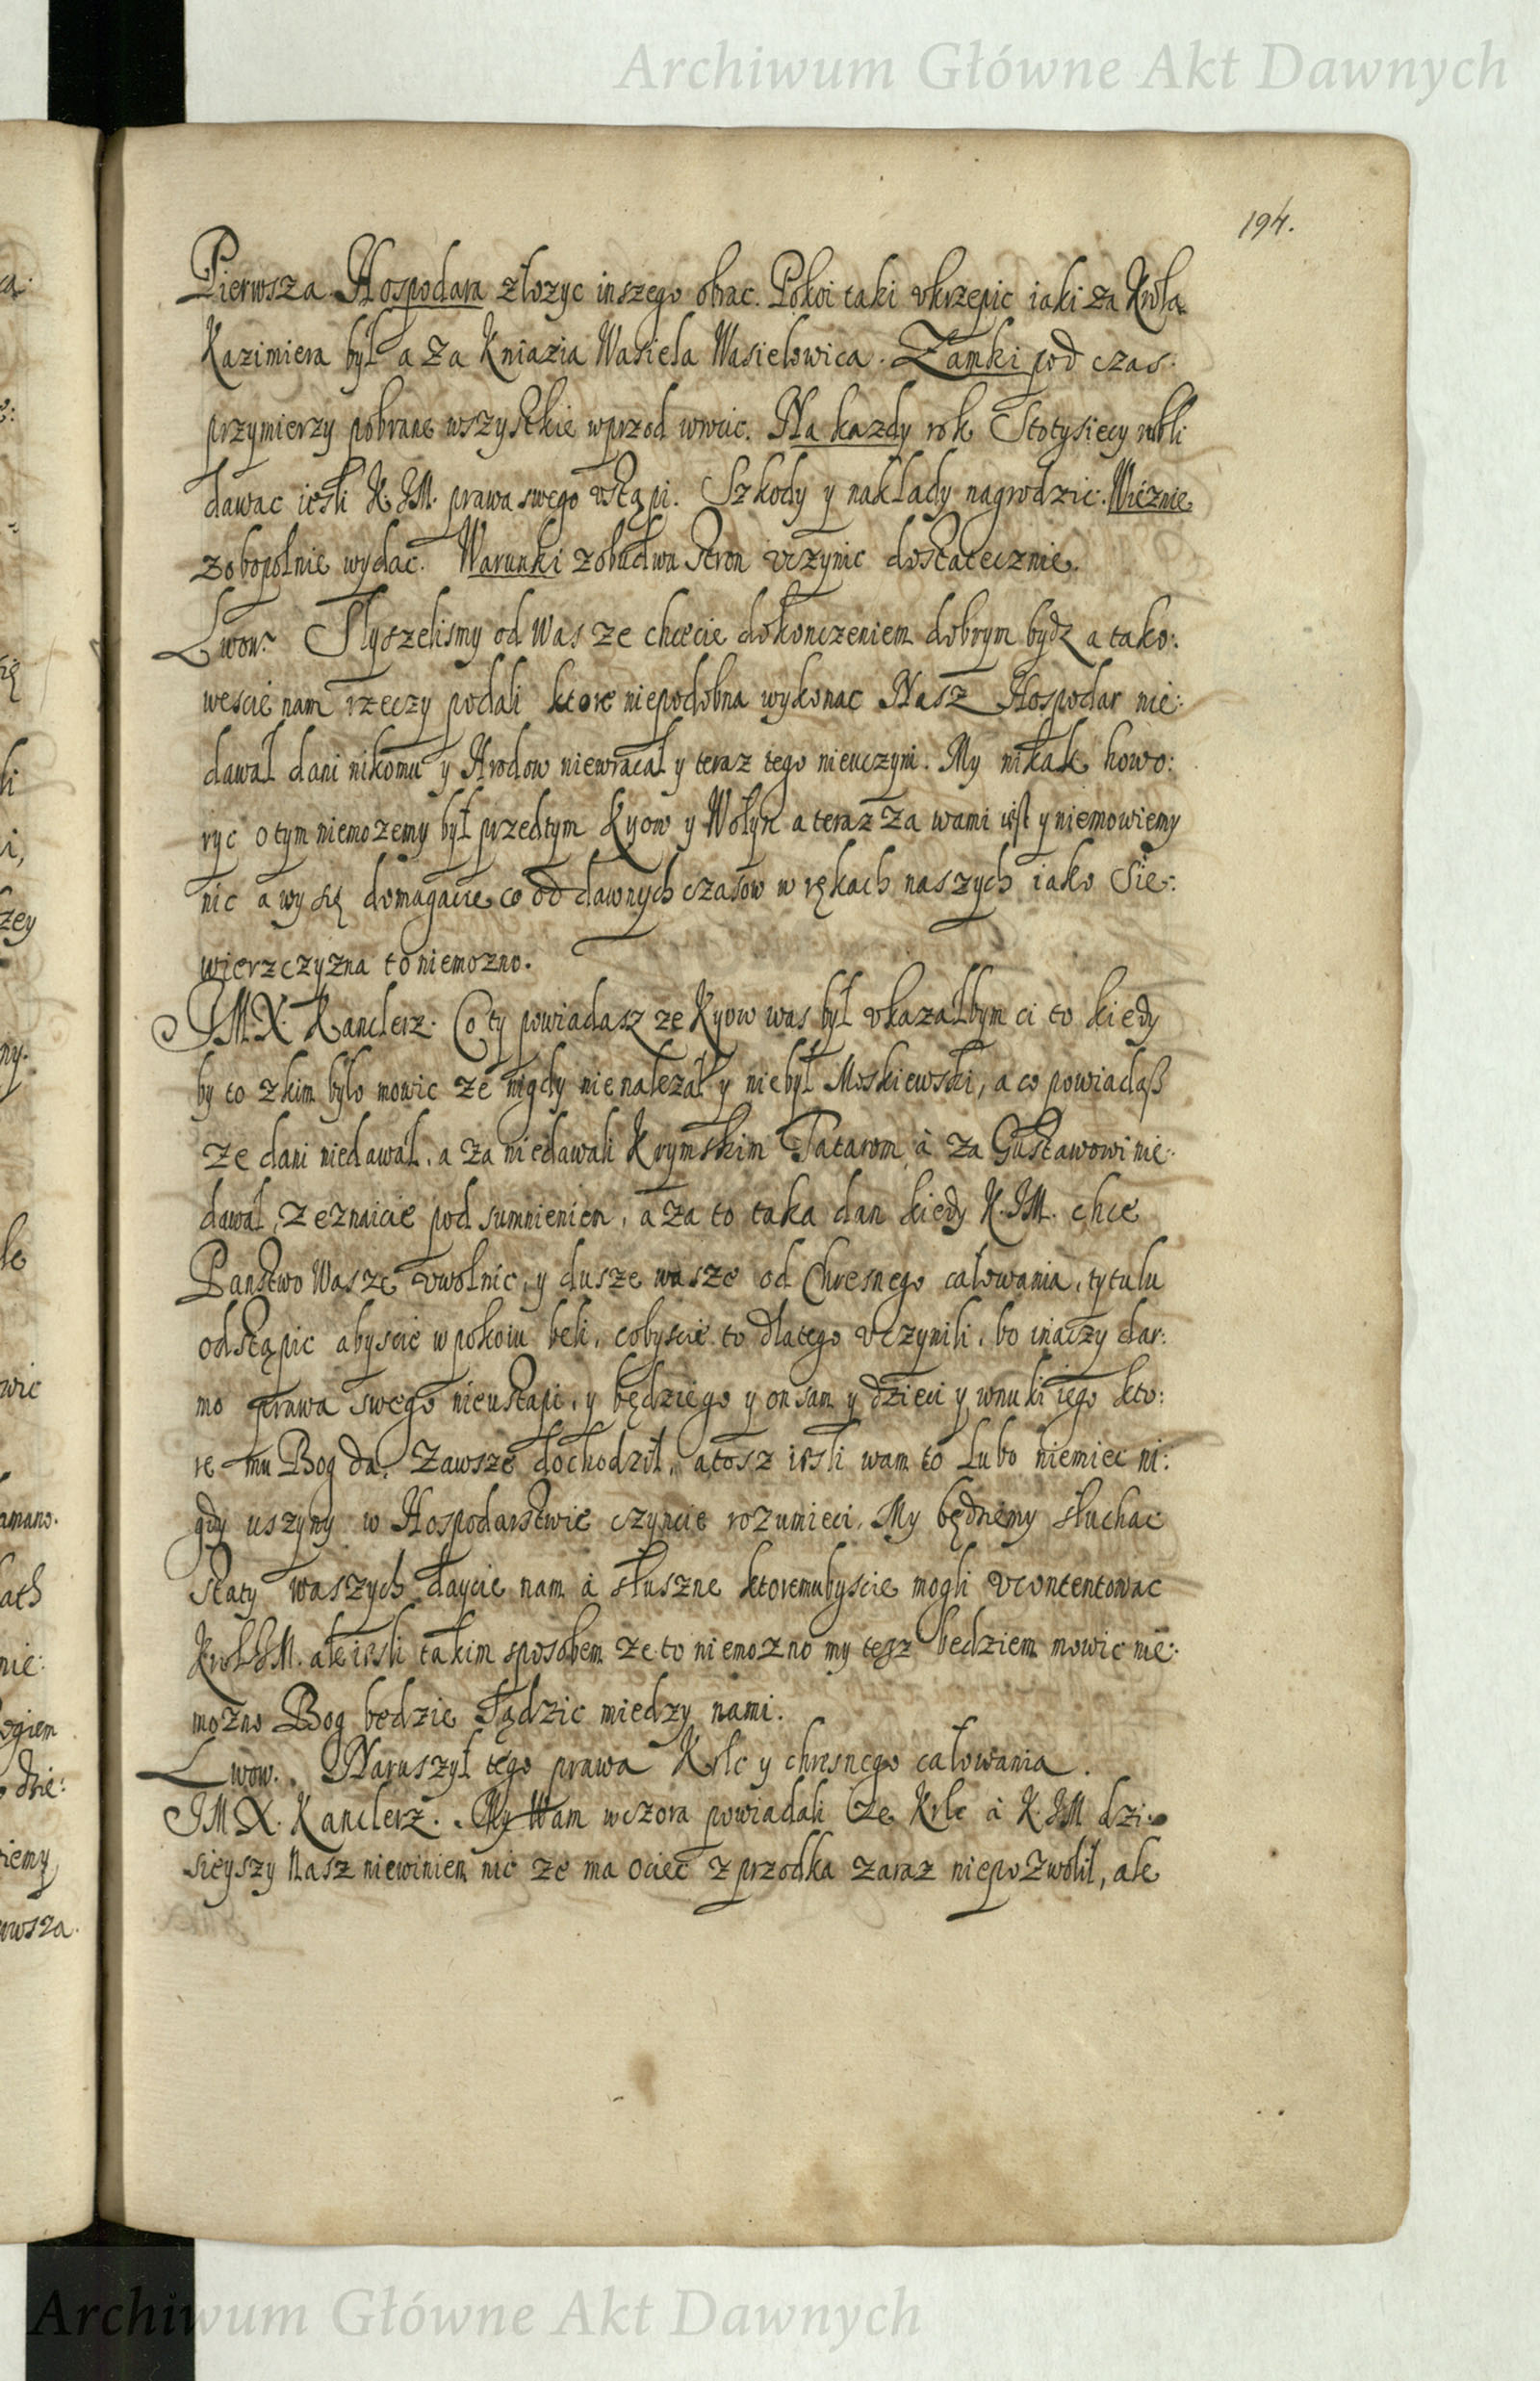 Archiwum Główne Akt Dawnych
194.
Pierwsza Hospodara złozyc inszego obrac. Pokoi taki vkrzepic iaki za Krola
Kazimiera był a za Kniazia Wasiela Wasielowica. Zamki pod czas
przymierzy pobrane wszystkie wprzod wrocic. Na kazdy rok Stotysiecy rubli
dawac iesli K. JM. prawa swego vstąpi. Szkody y nakłady nagrodzic. Wieznie
zobopolnie wydac. Warunki zobudwu stron vczynic dostatecznie.
Lwow. Słyszelismy od Was ze chcecie dokonczeniem dobrym bydz a tako:
wescie nam rzeczy podali ktore niepodobna wykonac Nasz Hospodar nie:
dawał dani nikomu y Hrodow niewracał y teraz tego nieuczyni. My nikak howo:
ryc o tym niemozemy był przedtym Kyow y Wołyn a teraz za wami iest y niemowiemy
nic a wy się domagacie co od dawnych czasow w rękach naszych iako Sie:
wierzczyzna to niemozno.
JM X. Kanclerz. Co ty powiadasz ze Kyow was był vkazałbym ci to kiedy
by to z kim było mowic ze nigdy nienalezał y niebył Moskiewski, a co powiadaß
ze dani niedawał, a za niedawali Krymskim Tatarom, à za Gustawowi nie:
dawał, zeznaicie pod sumnieniem, a za to taka dan kiedy K. JM. chce
Panstwo Wasze vwolnic, y dusze wasze od Chresnego całowania, tytulu
odstąpic abyscie w pokoiu beli, cobyscie to dlatego vczynili, bo inaczy dar:
mo prawa swego nieustąpi, y będziego y on sam y dzieci y wnuki iego kto:
re mu Bog da, zawsze dochodził, atosz iesli wam to lubo niemiec ni:
gdy uszyny w Hospodarstwie czyncie rozumieci, My będziemy słuchac
staty waszych daycie nam à słuszne ktoremubyscie mogli vcontentowac
Krol JM. ale iesli takim sposobem ze to niemozno my tesz bedziem mowic nie:
mozno Bog bedzie sądzic miedzy nami.
Lwow. Naruszył tego prawa Krlc y chresnego całowania.
JM X. Kanclerz. My Wam wczora powiadali ze Krlc à K. JM dzi:
sieyszy Nasz niewinien nic ze ma ociec z przodka zaraz niepozwolił, ale
Archiwum Główne Akt Dawnych